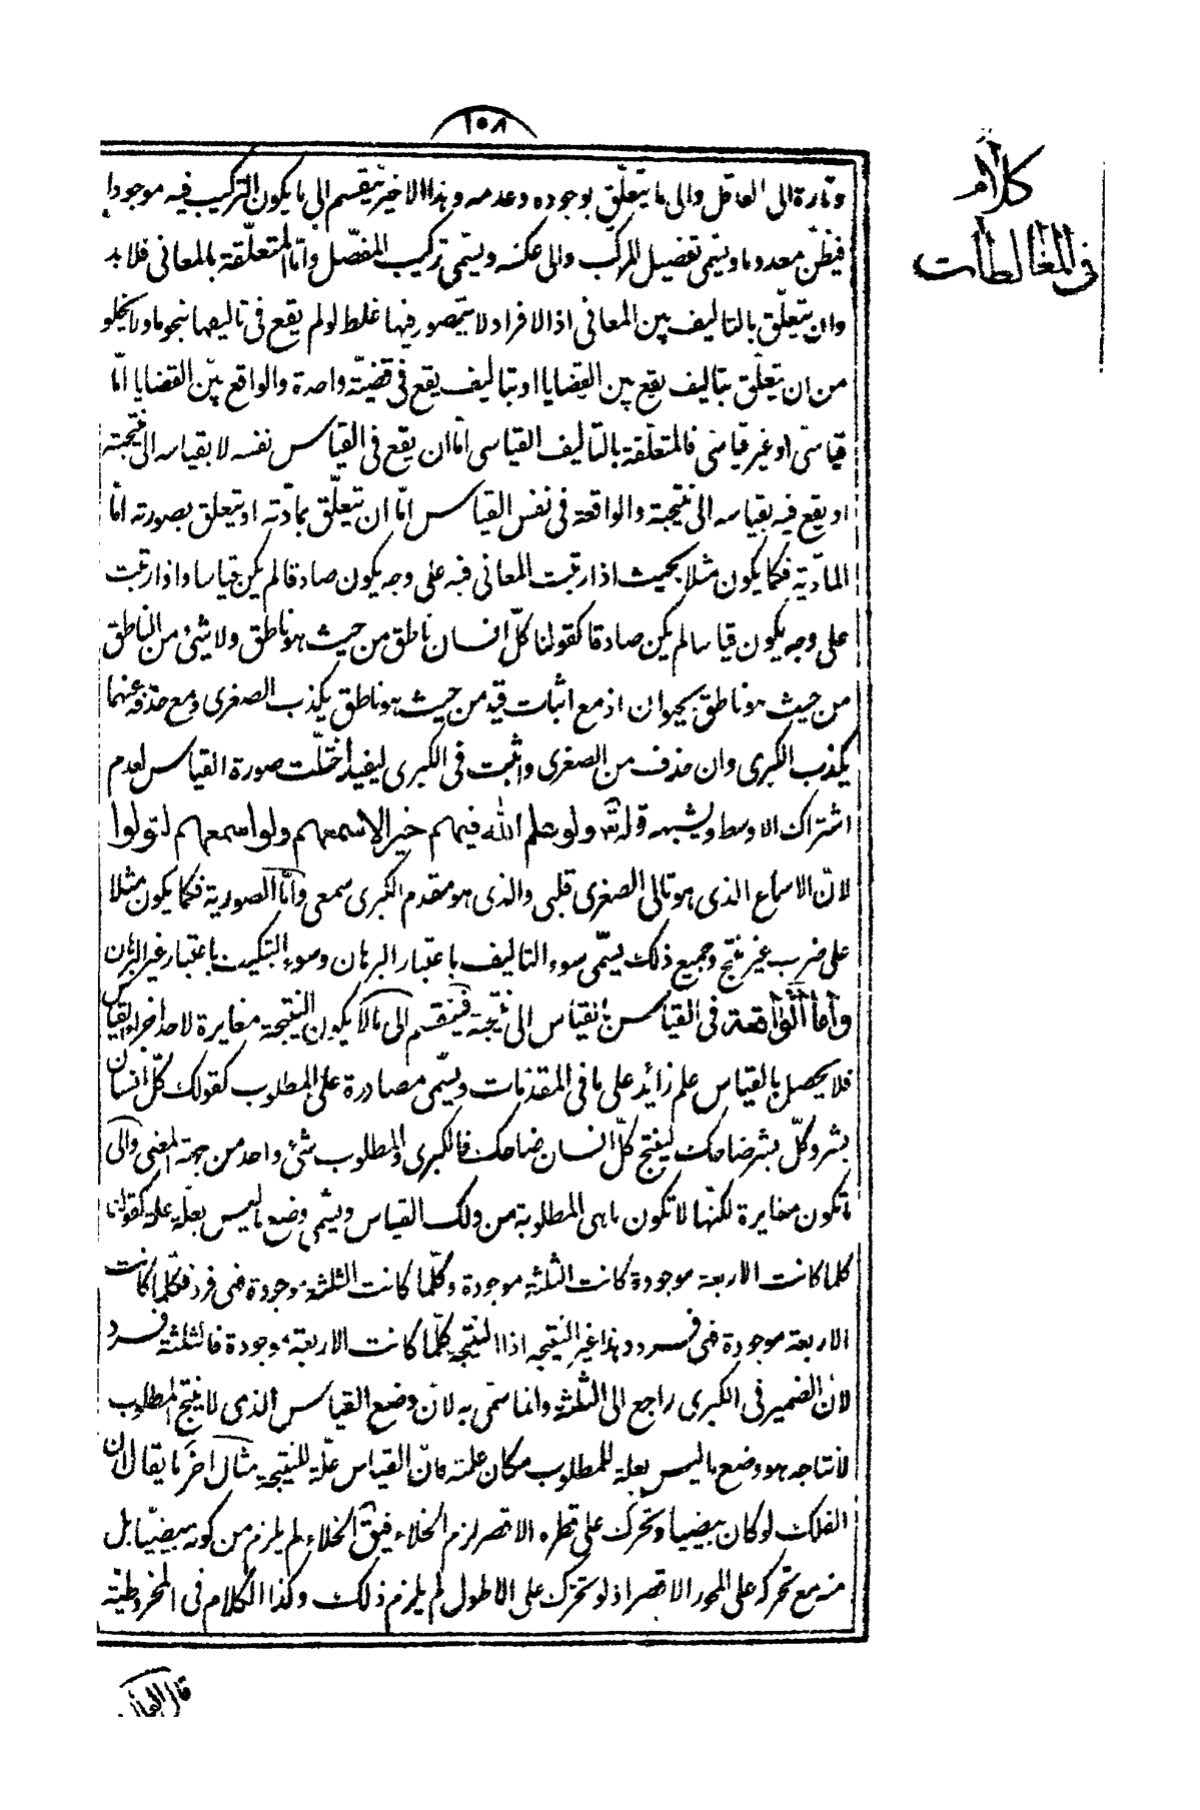 ١٠٨
كلام
فى المغالطات
وتارة الى العاقل والى ما يتعلّق بوجوده وعدمه وهذا الاخير ينقسم الى ما يكون التركيب فيه موجودا
فيظنّ معدوما ويسمّى تفصيل المركب والى عكسه ويسمّى تركيب المفصّل وامّا المتعلّقة بالمعانى فلا بد
وان يتعلّق بالتاليف بين المعانى اذ الافراد لا يتصور فيها غلط لو لم يقع فى تاليفها بنحو ما ولا يخلو
من ان يتعلّق بتاليف يقع بين القضايا او بتاليف يقع فى قضيّة واحدة والواقع بين القضايا امّا
قياسىّ او غير قياسىّ فالمتعلّقة بالتاليف القياسى امّا ان يقع فى القياس نفسه لا بقياسه الى نتيجته
او يقع فيه بقياسه الى نتيجته والواقعة فى نفس القياس امّا ان يتعلّق بمادّته او يتعلق بصورته امّا
المادّية فكما يكون مثلا بحيث اذا رتبت المعانى فيه على وجه يكون صادقا لم يكن قياسا واذا رتبت
على وجه يكون قياسا لم يكن صادقا كقولنا كلّ انسان ناطق من حيث هو ناطق ولا شىء من الناطق
من حيث هو ناطق بحيوان اذ مع اثبات قيد من حيث هو ناطق يكذب الصغرى ومع حذفه عنهما
يكذب الكبرى وان حذف من الصغرى واثبت فى الكبرى ليفيد اختلّت صورة القياس لعدم
اشتراك الاوسط ويشبهه قوله تعالى ولو علم الله فيهم خيرا لاسمعهم ولو اسمعهم لتولوا
لانّ الاسماع الذى هو تالى الصغرى قلبى والذى هو مقدم الكبرى سمعى وامّا الصورية فكما يكون مثلا
على ضرب غير منتج وجميع ذلك يسمّى سوء التاليف باعتبار البرهان وسوء التبكيت باعتبار غير البرهان
وأما الواقعة فى القياس بالقياس الى نتيجته فينقسم الى ما لا يكون النتيجة مغايرة لاحد اجزاء القياس
فلا يحصل بالقياس علم زائد على ما فى المقدمات ويسّمى مصادرة على المطلوب كقولك كلّ انسان
بشر وكلّ بشر ضاحك لينتج كلّ انسان ضاحك فالكبرى والمطلوب شىء واحد من جهة المعنى والى
ما تكون مغايرة لكنّها لا تكون ما هى المطلوبة من ذلك القياس ويسّمى وضع ما ليس بعلّة علة كقولنا
كلما كانت الاربعة موجودة كانت الثلثة موجودة وكلّما كانت الثلثة موجودة فهى فرد فكلّما كانت
الاربعة موجودة فهى فرد وهذا غير النتيجه اذ النتيجه كلّما كانت الاربعة موجودة فالثلثة فرد
لانّ الضمير فى الكبرى راجع الى الثلثة وانما سمّى به لانّ وضع القياس الذى لا ينتج المطلوب
لانتاجه هو وضع ما ليس بعلة للمطلوب مكان علته فانّ القياس علّة للنتيجة مثال اخر ما يقال ان
الفلك لو كان بيضيا وتحرك على قطره الاقصر لزم الخلاء فيق الخلاء لم يلزم من كونه بيضيّا بل
منه مع تحركه على المحور الاقصر اذ لو تحرّك على الاطول لم يلزم ذلك وكذا الكلام فى المخروطيّة